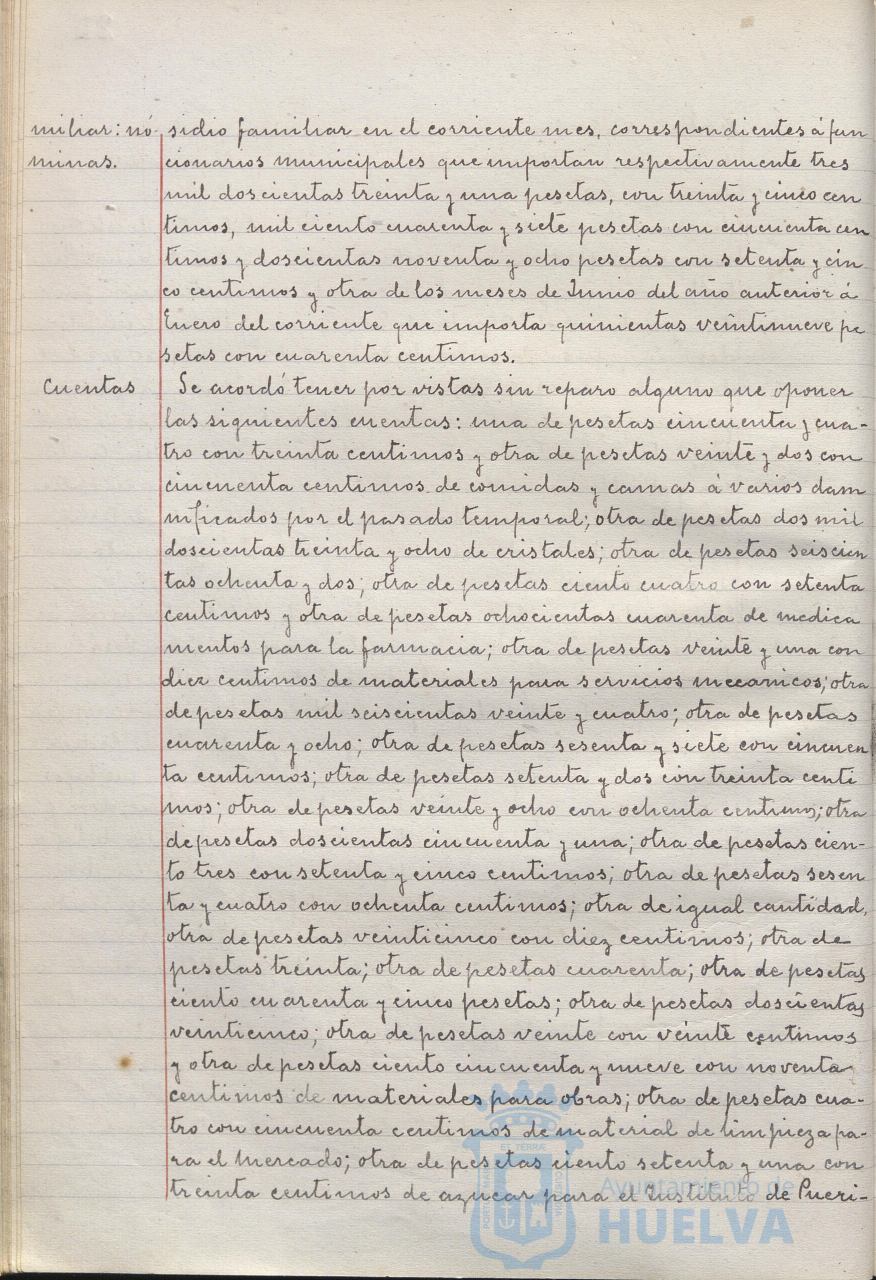 miliar: nó
minas.
sidio familiar en el corriente mes, correspondientes á fun
cionarios municipales que importan respectivamente tres
mil doscientas treinta y una pesetas, con treinta y cinco cen
timos, mil ciento cuarenta y siete pesetas con cincuenta cen
timos y doscientas noventa y ocho pesetas con setenta y cin
co centimos y otra de los meses de Junio del año anterior á
Enero del corriente que importa quinientas veintinueve pe
setas con cuarenta centimos.
Cuentas
Se acordó tener por vistas sin reparo alguno que oponer
las siguientes cuentas: una de pesetas cincuenta y cua-
tro con treinta centimos y otra de pesetas veinte y dos con
cincuenta centimos de comidas y camas á varios dam
nificados por el pasado temporal; otra de pesetas dos mil
doscientas treinta y ocho de cristales; otra de pesetas seiscien
tas ochenta y dos; otra de pesetas ciento cuatro con setenta
centimos y otra de pesetas ochocientas cuarenta de medica
mentos para la farmacia; otra de pesetas veinte y una con
diez centimos de materiales para servicios mecanicos; otra
de pesetas mil seiscientas veinte y cuatro; otra de pesetas
cuarenta y ocho; otra de pesetas sesenta y siete con cincuen
ta centimos; otra de pesetas setenta y dos con treinta centi
mos; otra de pesetas veinte y ocho con ochenta centimos; otra
de pesetas doscientas cincuenta y una; otra de pesetas cien-
to tres con setenta y cinco centimos; otra de pesetas sesen
ta y cuatro con ochenta centimos; otra de igual cantidad,
otra de pesetas veinticinco con diez centimos; otra de
pesetas treinta; otra de pesetas cuarenta; otra de pesetas
ciento cuarenta y cinco pesetas; otra de pesetas doscientas
veinticinco; otra de pesetas veinte con veinte centimos
y otra de pesetas ciento cincuenta y nueve con noventa
centimos de materiales para obras; otra de pesetas cua-
tro con cincuenta centimos de material de limpieza pa-
ra el Mercado; otra de pesetas ciento setenta y una con
treinta centimos de azucar para el Instituto de Pueri-
Ayuntamiento de
HUELVA